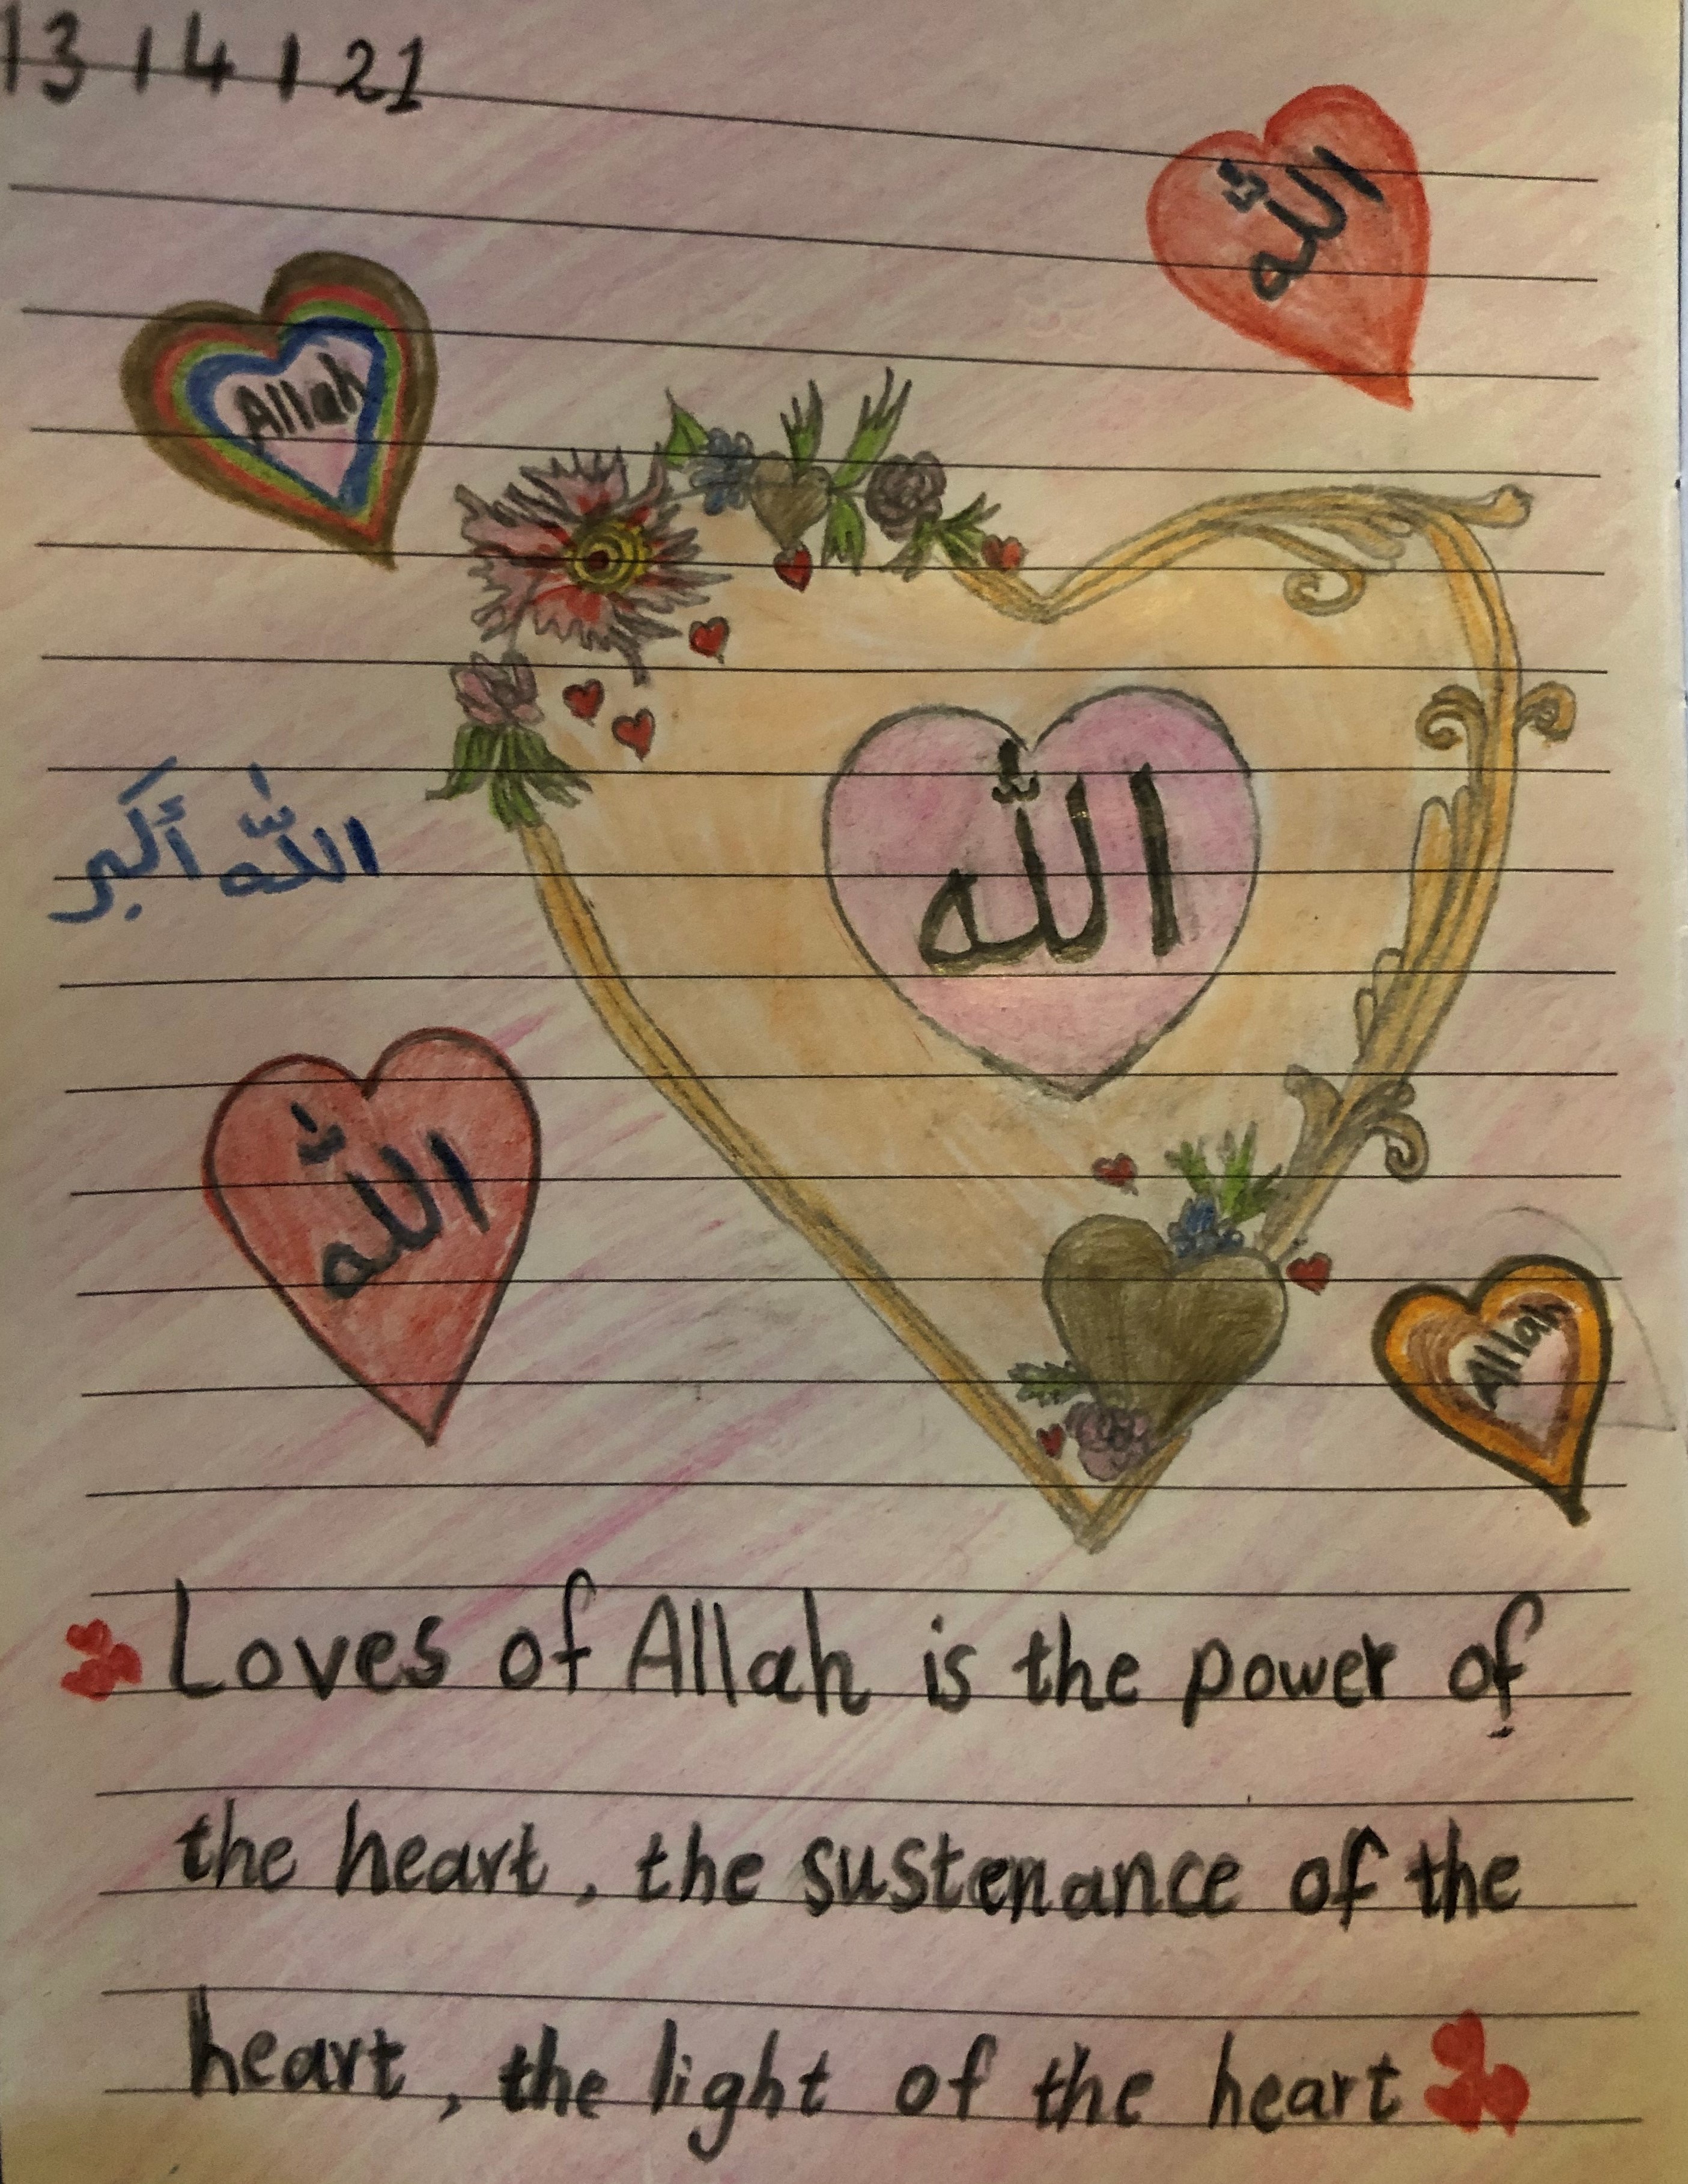 13/4/21
الله
Allah
الله
الله أكبر
الله
Allah
Loves of Allah is the power of
the heart, the sustenance of the
heart, the light of the heart